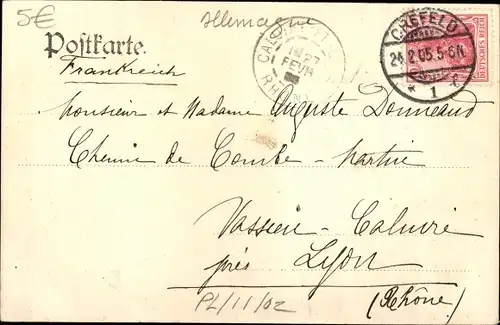 5€
Allemagne
Postkarte.
Frankreich
CREFELD
24.2.05.5-6N.
* 1
DEUTSCHES REICH
CAL
RHÔN
27
FEVR
Monsieur et Madame Auguste Donneaud
Chemin de Combe-Martin
Vassieu-Caluire
près Lyon
(Rhône)
PL/11/02